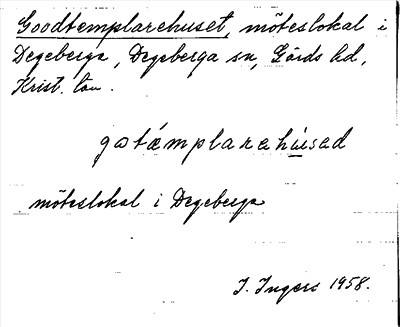 Goodtemplarehuset, möteslokal i
Degeberga, Degeberga sn, Gärds hd,
Krist. län.
gotämplarehúsad
möteslokal i Degeberga
I. Ingers 1958.